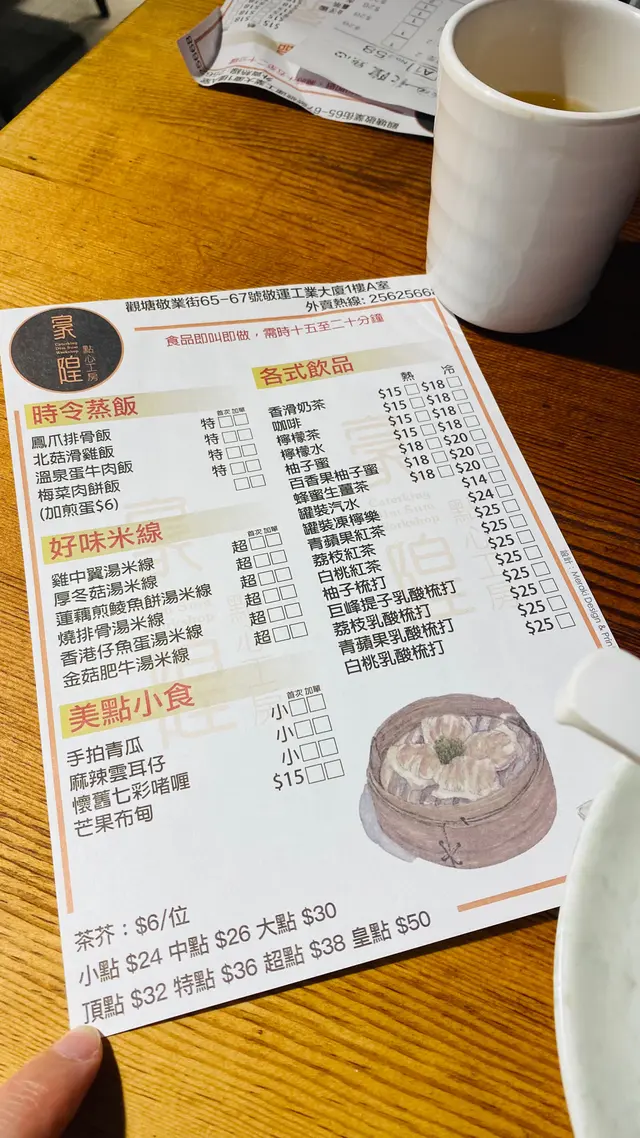 觀塘敬業街65-67號敬運工業大廈1樓A室
外賣熱線: 2562566
食品即叫即做，需時十五至二十分鐘
豪隍
點心工房
時令蒸飯
首次 加單
鳳爪排骨飯 特
北菇滑雞飯 特
溫泉蛋牛肉飯 特
梅菜肉餅飯 特
(加煎蛋$6)
好味米線
首次 加單
雞中翼湯米線 超
厚冬菇湯米線 超
蓮藕煎鯪魚餅湯米線 超
燒排骨湯米線 超
香港仔魚蛋湯米線 超
金菇肥牛湯米線 超
美點小食
首次 加單
手拍青瓜 小
麻辣雲耳仔 小
懷舊七彩啫喱 小
芒果布甸 $15
各式飲品
熱 冷
香滑奶茶 $15 $18
咖啡 $15 $18
檸檬茶 $15 $18
檸檬水 $15 $18
柚子蜜 $18 $20
百香果柚子蜜 $18 $20
蜂蜜生薑茶 $18 $20
罐裝汽水 $14
罐裝凍檸樂 $24
青蘋果紅茶 $25
荔枝紅茶 $25
白桃紅茶 $25
柚子梳打 $25
巨峰提子乳酸梳打 $25
荔枝乳酸梳打 $25
青蘋果乳酸梳打 $25
白桃乳酸梳打 $25
設計：Meraki Design & Prin
茶芥：$6/位
小點 $24 中點 $26 大點 $30
頂點 $32 特點 $36 超點 $38 皇點 $50